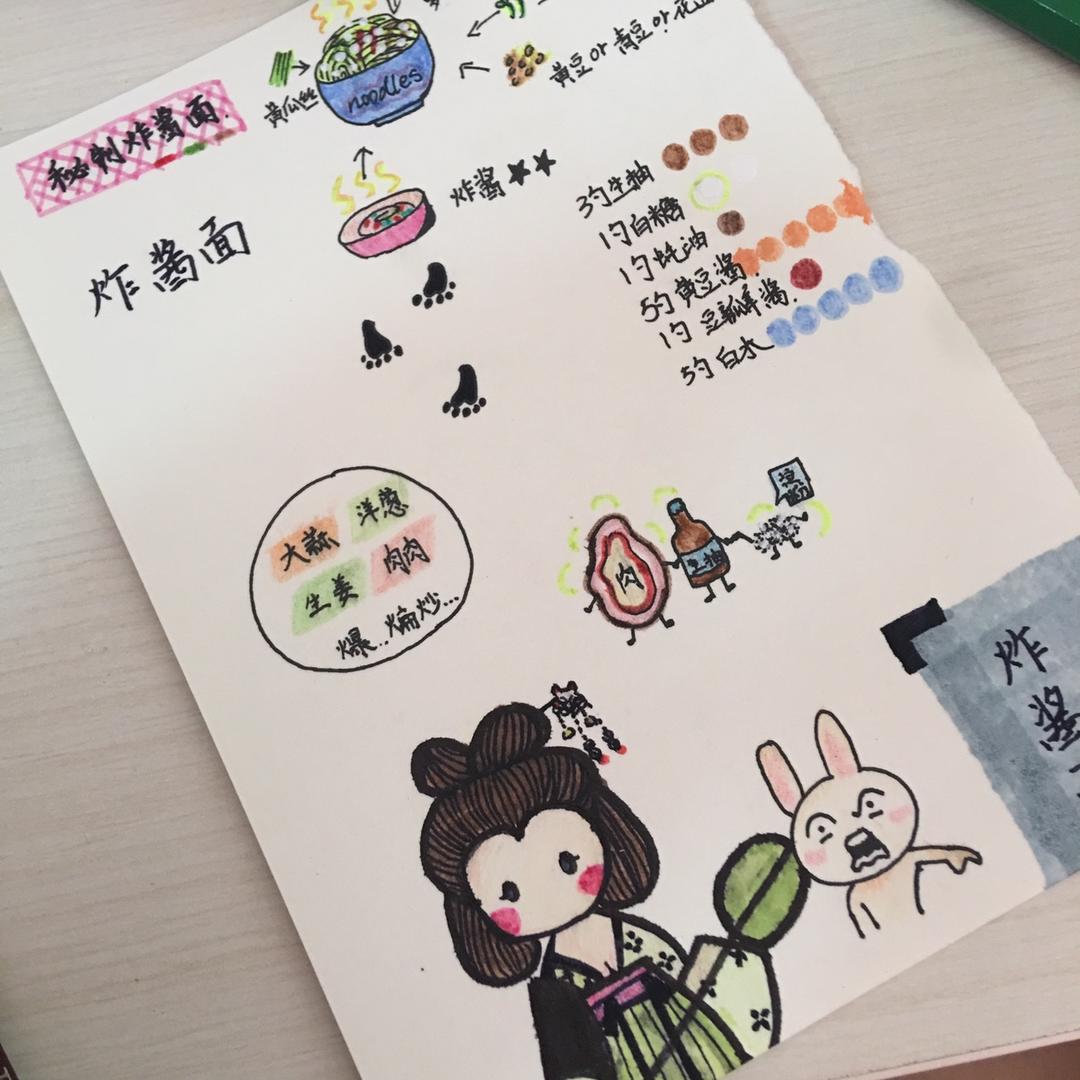 noodles
黄瓜丝
黄豆or青豆or花
秘制炸酱面.
炸酱★★
炸酱面
3勺生抽
1勺白糖
1勺蚝油
5勺黄豆酱.
1勺豆瓣酱.
5勺白水
大蒜 洋葱
生姜 肉肉
爆..煸炒...
肉
生抽
炸
酱